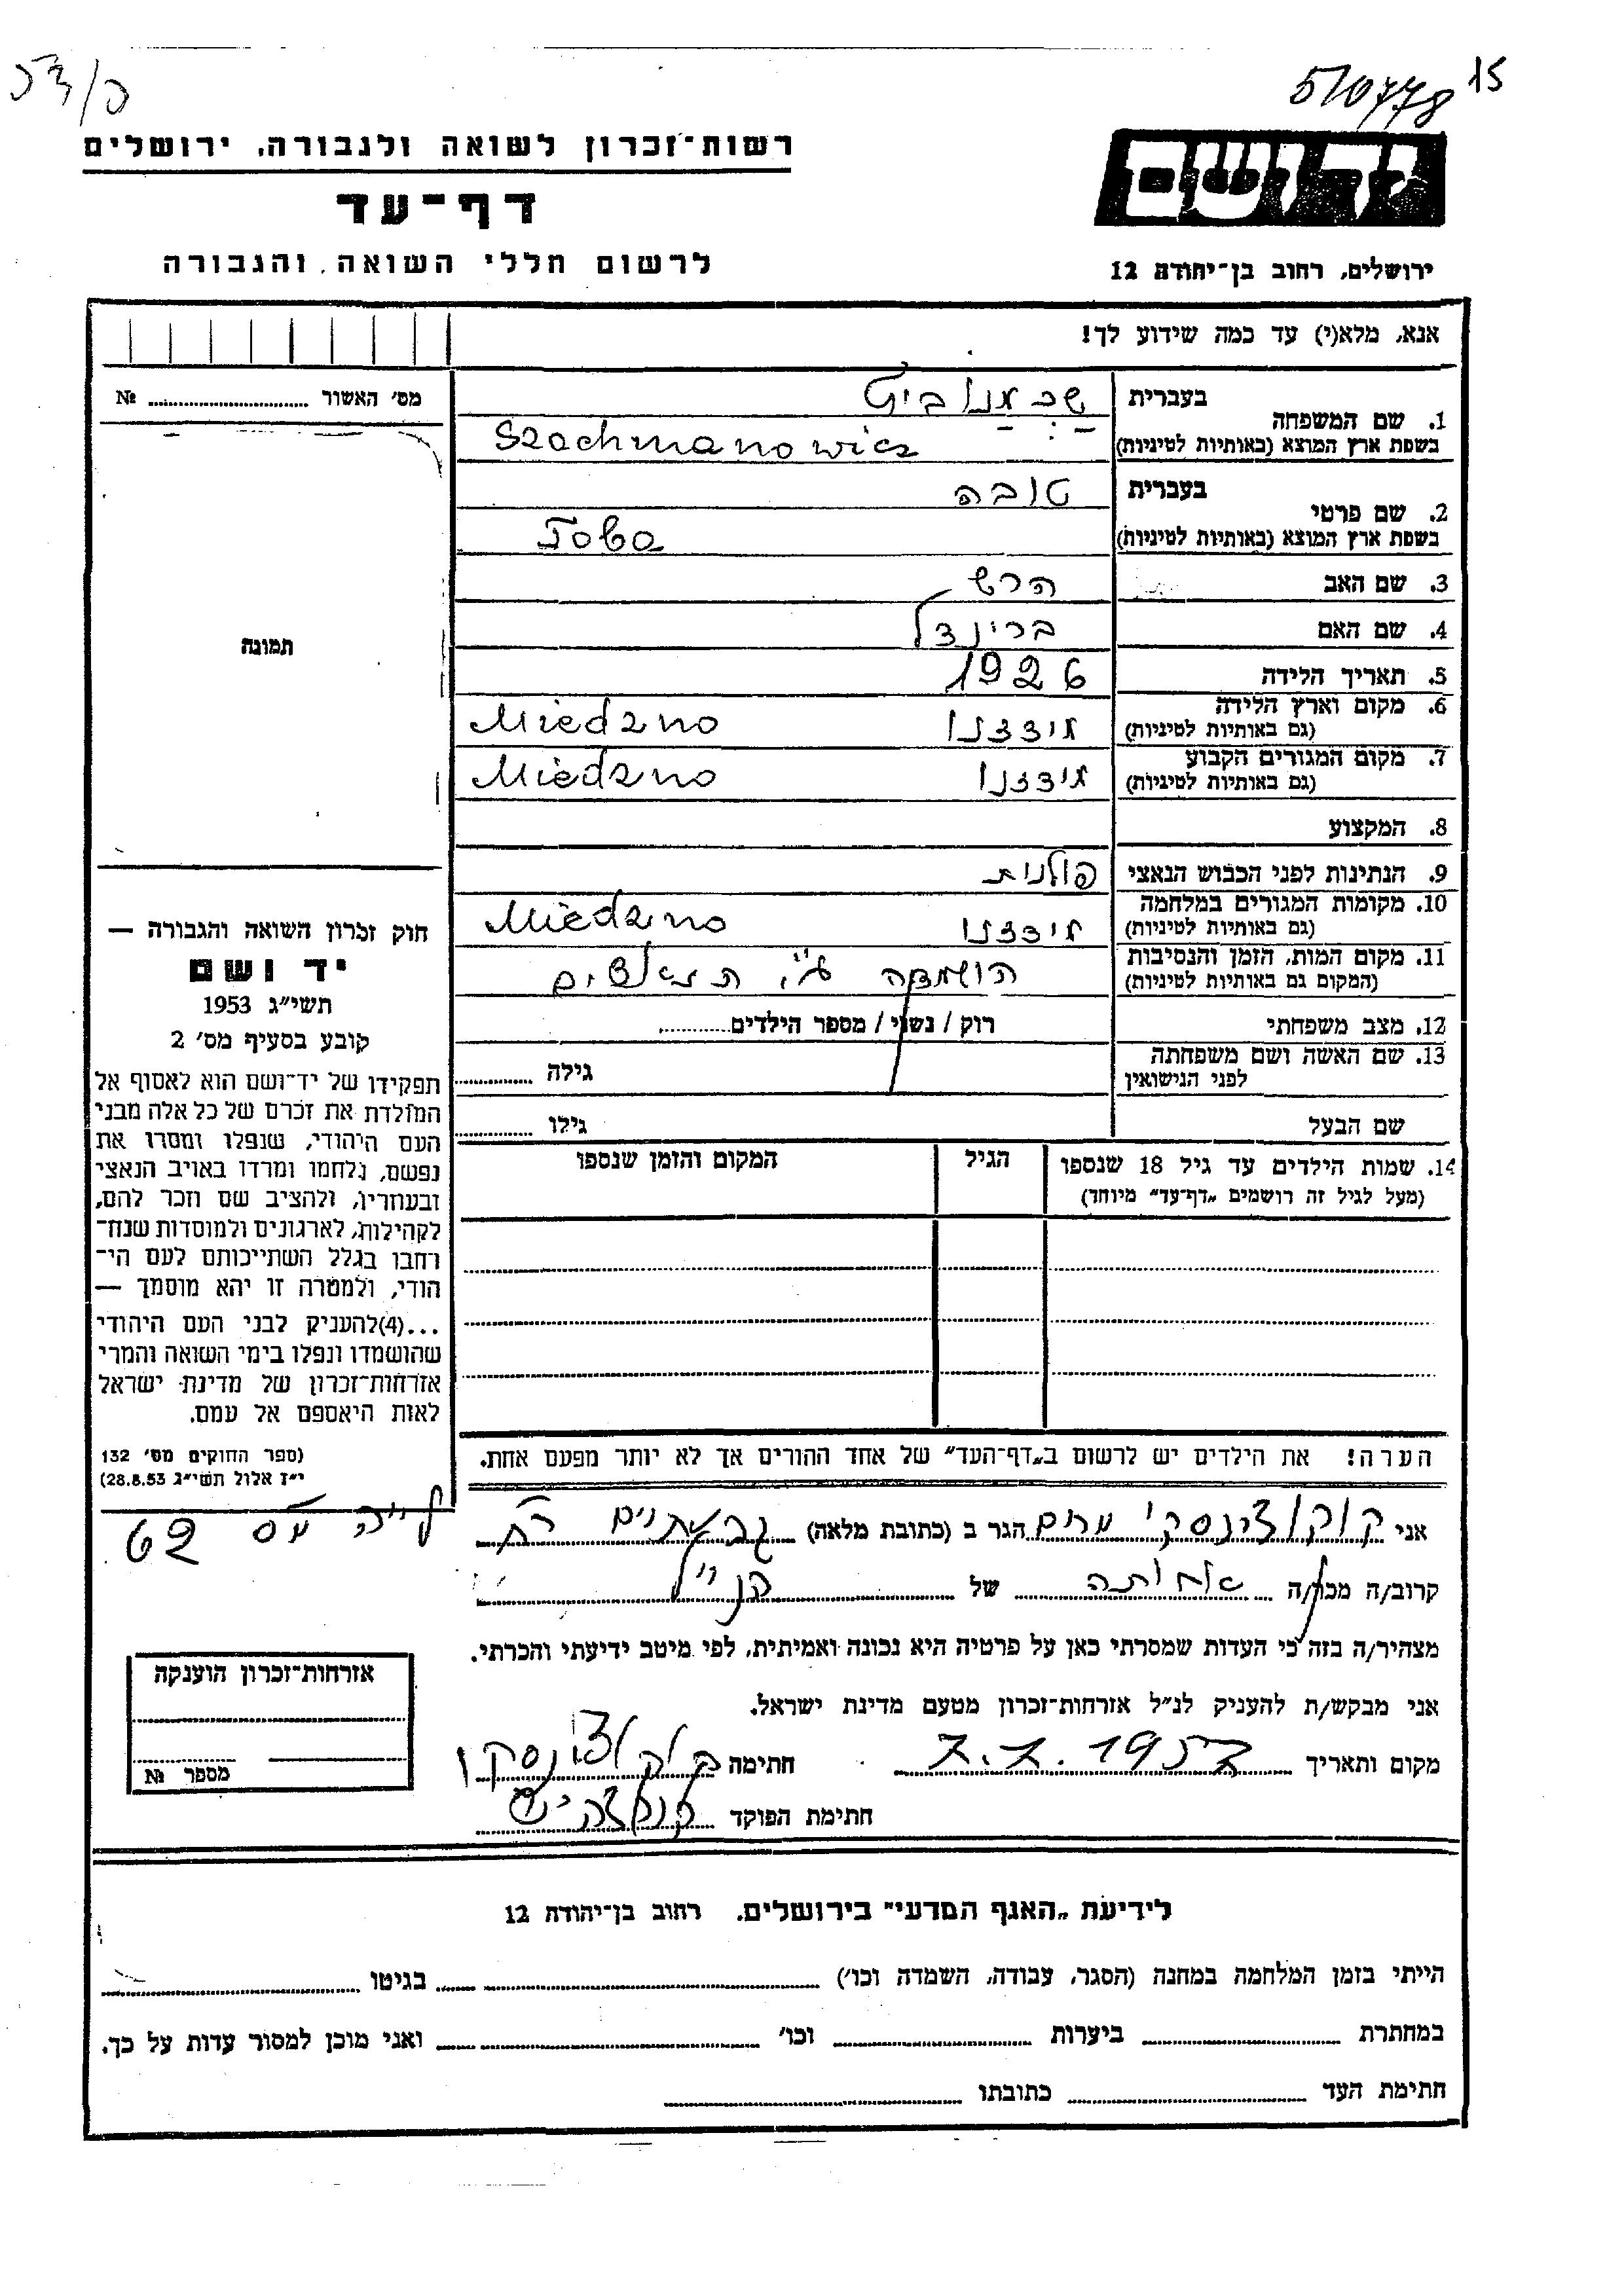 510778 15
רשות־זכרון לשואה ולגבורה, ירושלים
דף־עד
לרשום חללי השואה והגבורה
יד ושם
ירושלים, רחוב בן־יהודה 12
אנא, מלא(י) עד כמה שידוע לך!
מס׳ האשור №
תמונה
בעברית
1. שם המשפחה
בשפת ארץ המוצא (באותיות לטיניות)
שכמנוביץ
Szachmanowicz
בעברית
2. שם פרטי
בשפת ארץ המוצא (באותיות לטיניות)
טובה
Toba
3. שם האב הרש
4. שם האם בריינדל
5. תאריך הלידה 1926
6. מקום וארץ הלידה
(גם באותיות לטיניות)
מידזנו Miedzno
7. מקום המגורים הקבוע
(גם באותיות לטיניות)
מידזנו Miedzno
8. המקצוע
9. הנתינות לפני הכבוש הנאצי פולנית
10. מקומות המגורים במלחמה
(גם באותיות לטיניות)
מידזנו Miedzno
11. מקום המות, הזמן והנסיבות
(המקום גם באותיות לטיניות)
הושמדה ע״י הנאצים
12. מצב משפחתי רוק / נשוי / מספר הילדים
13. שם האשה ושם משפחתה
לפני הנישואין
גילה
שם הבעל גילו
14. שמות הילדים עד גיל 18 שנספו
(מעל לגיל זה רושמים „דף־עד״ מיוחד)
הגיל
המקום והזמן שנספו
חוק זכרון השואה והגבורה —
יד ושם
תשי״ג 1953
קובע בסעיף מס׳ 2
תפקידו של יד־ושם הוא לאסוף אל
המולדת את זכרם של כל אלה מבני
העם היהודי, שנפלו ומסרו את
נפשם, נלחמו ומרדו באויב הנאצי
ובעוזריו, ולהציב שם וזכר להם,
לקהילות, לארגונים ולמוסדות שנח־
רחבו בגלל השתייכותם לעם הי־
הודי, ולמטרה זו יהא מוסמך —
...(4)להעניק לבני העם היהודי
שהושמדו ונפלו בימי השואה והמרי
אזרחות־זכרון של מדינת ישראל
לאות היאספם אל עמם.
(ספר החוקים מס׳ 132
י״ז אלול תשי״ג 28.8.53)
הערה! את הילדים יש לרשום ב„דף־העד״ של אחד ההורים אך לא יותר מפעם אחת.
אני קוקוצינסקי מרים הגר ב (כתובת מלאה) גבעתיים רח 62
קרוב/ה מכר/ה אחותה של הנ״ל
מצהיר/ה בזה כי העדות שמסרתי כאן על פרטיה היא נכונה ואמיתית, לפי מיטב ידיעתי והכרתי.
אני מבקש/ת להעניק לנ״ל אזרחות־זכרון מטעם מדינת ישראל.
מקום ותאריך 7.7.1957 חתימה קוקוצינסקי
חתימת הפוקד
אזרחות־זכרון הוענקה
מספר №
לידיעת „האגף המדעי״ בירושלים, רחוב בן־יהודה 12
הייתי בזמן המלחמה במחנה (הסגר, עבודה, השמדה וכו׳) בגיטו
במחתרת ביערות וכו׳ ואני מוכן למסור עדות על כך.
חתימת העד כתובתו